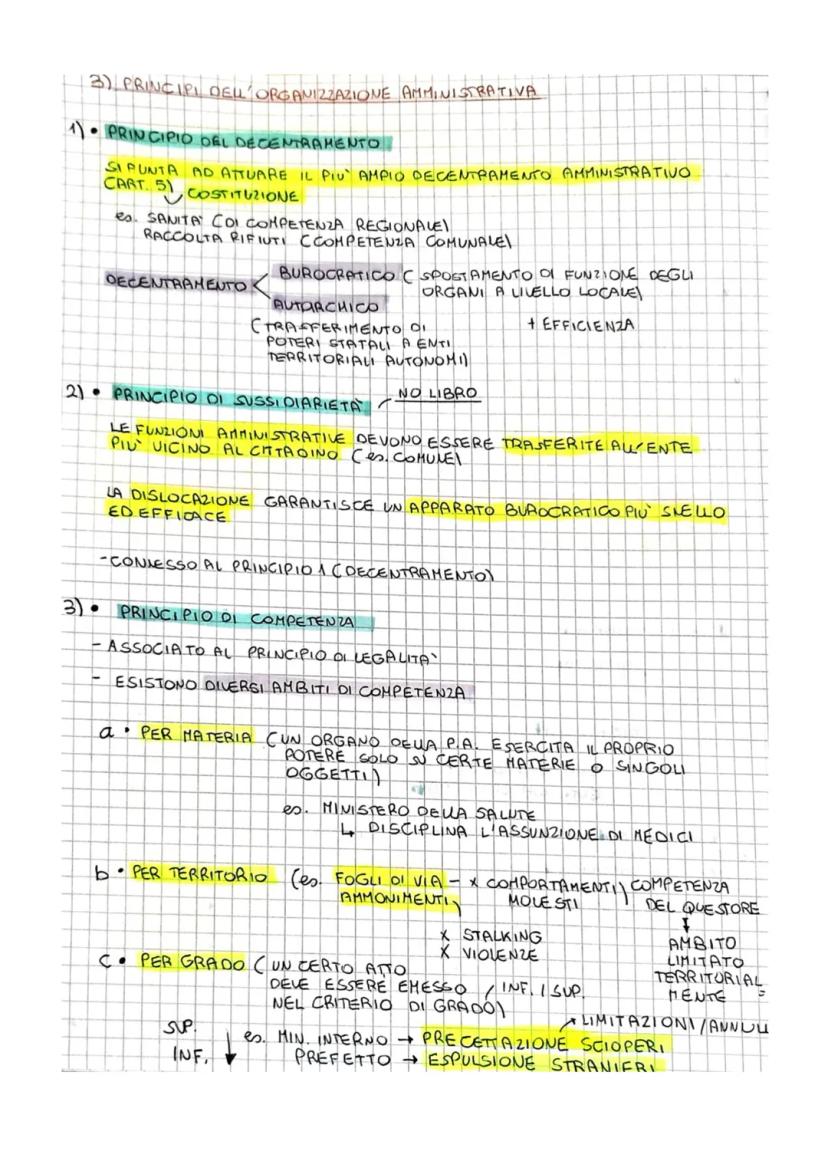 3) PRINCIPI DELL'ORGANIZZAZIONE AMMINISTRATIVA
1) • PRINCIPIO DEL DECENTRAMENTO
SI PUNTA AD ATTUARE IL PIU' AMPIO DECENTRAMENTO AMMINISTRATIVO
(ART. 5) COSTITUZIONE
es. SANITA' (DI COMPETENZA REGIONALE)
RACCOLTA RIFIUTI (COMPETENZA COMUNALE)
DECENTRAMENTO < BUROCRATICO ( SPOSTAMENTO DI FUNZIONE DEGLI
ORGANI A LIVELLO LOCALE)
AUTARCHICO
(TRASFERIMENTO DI + EFFICIENZA
POTERI STATALI A ENTI
TERRITORIALI AUTONOMI)
2) • PRINCIPIO DI SUSSIDIARIETÀ NO LIBRO
LE FUNZIONI AMMINISTRATIVE DEVONO ESSERE TRASFERITE ALL'ENTE
PIU' VICINO AL CITTADINO (es. COMUNE)
LA DISLOCAZIONE GARANTISCE UN APPARATO BUROCRATICO PIU' SNELLO
ED EFFICACE
- CONNESSO AL PRINCIPIO 1 (DECENTRAMENTO)
3) • PRINCIPIO DI COMPETENZA
- ASSOCIATO AL PRINCIPIO DI LEGALITA'
- ESISTONO DIVERSI AMBITI DI COMPETENZA
a • PER MATERIA (UN ORGANO DELLA P.A. ESERCITA IL PROPRIO
POTERE SOLO SU CERTE MATERIE O SINGOLI
OGGETTI)
es. MINISTERO DELLA SALUTE
↳ DISCIPLINA L'ASSUNZIONE DI MEDICI
b • PER TERRITORIO (es. FOGLI DI VIA - x COMPORTAMENTI) COMPETENZA
AMMONIMENTI MOLESTI DEL QUESTORE
x STALKING
x VIOLENZE
↓
AMBITO
LIMITATO
TERRITORIAL
MENTE =
c • PER GRADO ( UN CERTO ATTO
DEVE ESSERE EMESSO / INF. / SUP.
NEL CRITERIO DI GRADO)
LIMITAZIONI/ANNULL
SUP.
INF. ↓
es. MIN. INTERNO → PRECETTAZIONE SCIOPERI
PREFETTO → ESPULSIONE STRANIERI